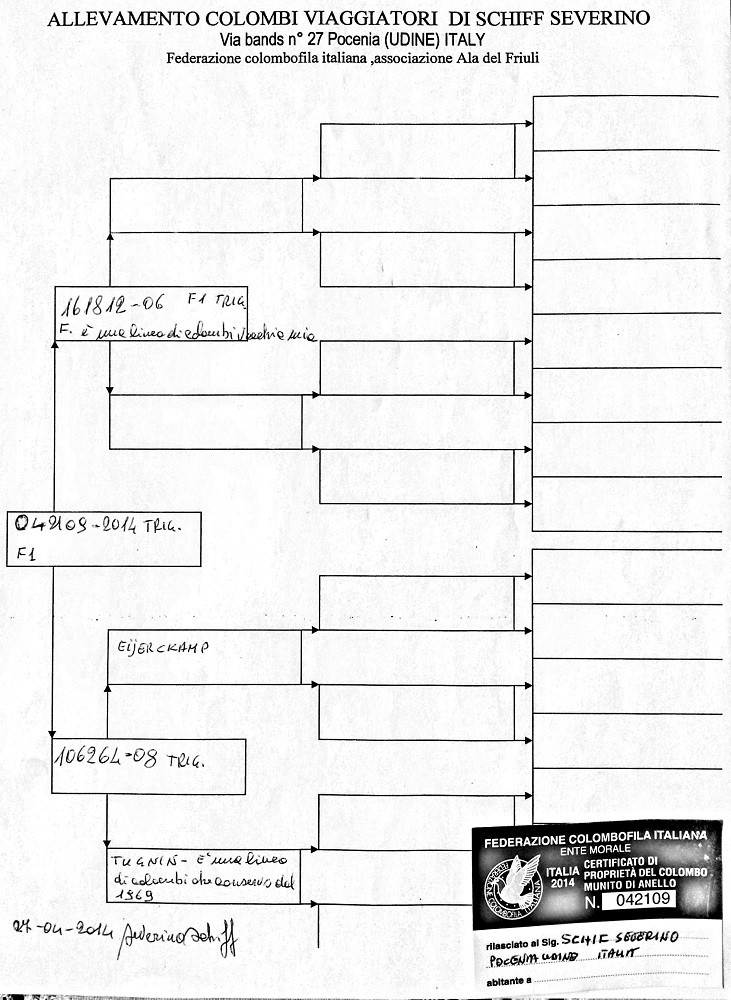 ALLEVAMENTO COLOMBI VIAGGIATORI DI SCHIFF SEVERINO
Via bands n° 27 Pocenia (UDINE) ITALY
Federazione colombofila italiana ,associazione Ala del Friuli
161812-06 F1 TRIG.
F. è una linea di colombi vecchia mia
042109-2014 TRIG.
F1
EIJERCKAMP
106264-08 TRIG.
TUGNIN- È una linea
di colombi che conservo dal
1969
27-04-2014 Severino Schiff
FEDERAZIONE COLOMBOFILA ITALIANA
ENTE MORALE
ITALIA
2014
CERTIFICATO DI
PROPRIETÀ DEL COLOMBO
MUNITO DI ANELLO
N. 042109
rilasciato al Sig. SCHIF SEVERINO
POCENIA UDINE ITALIT
abitante a